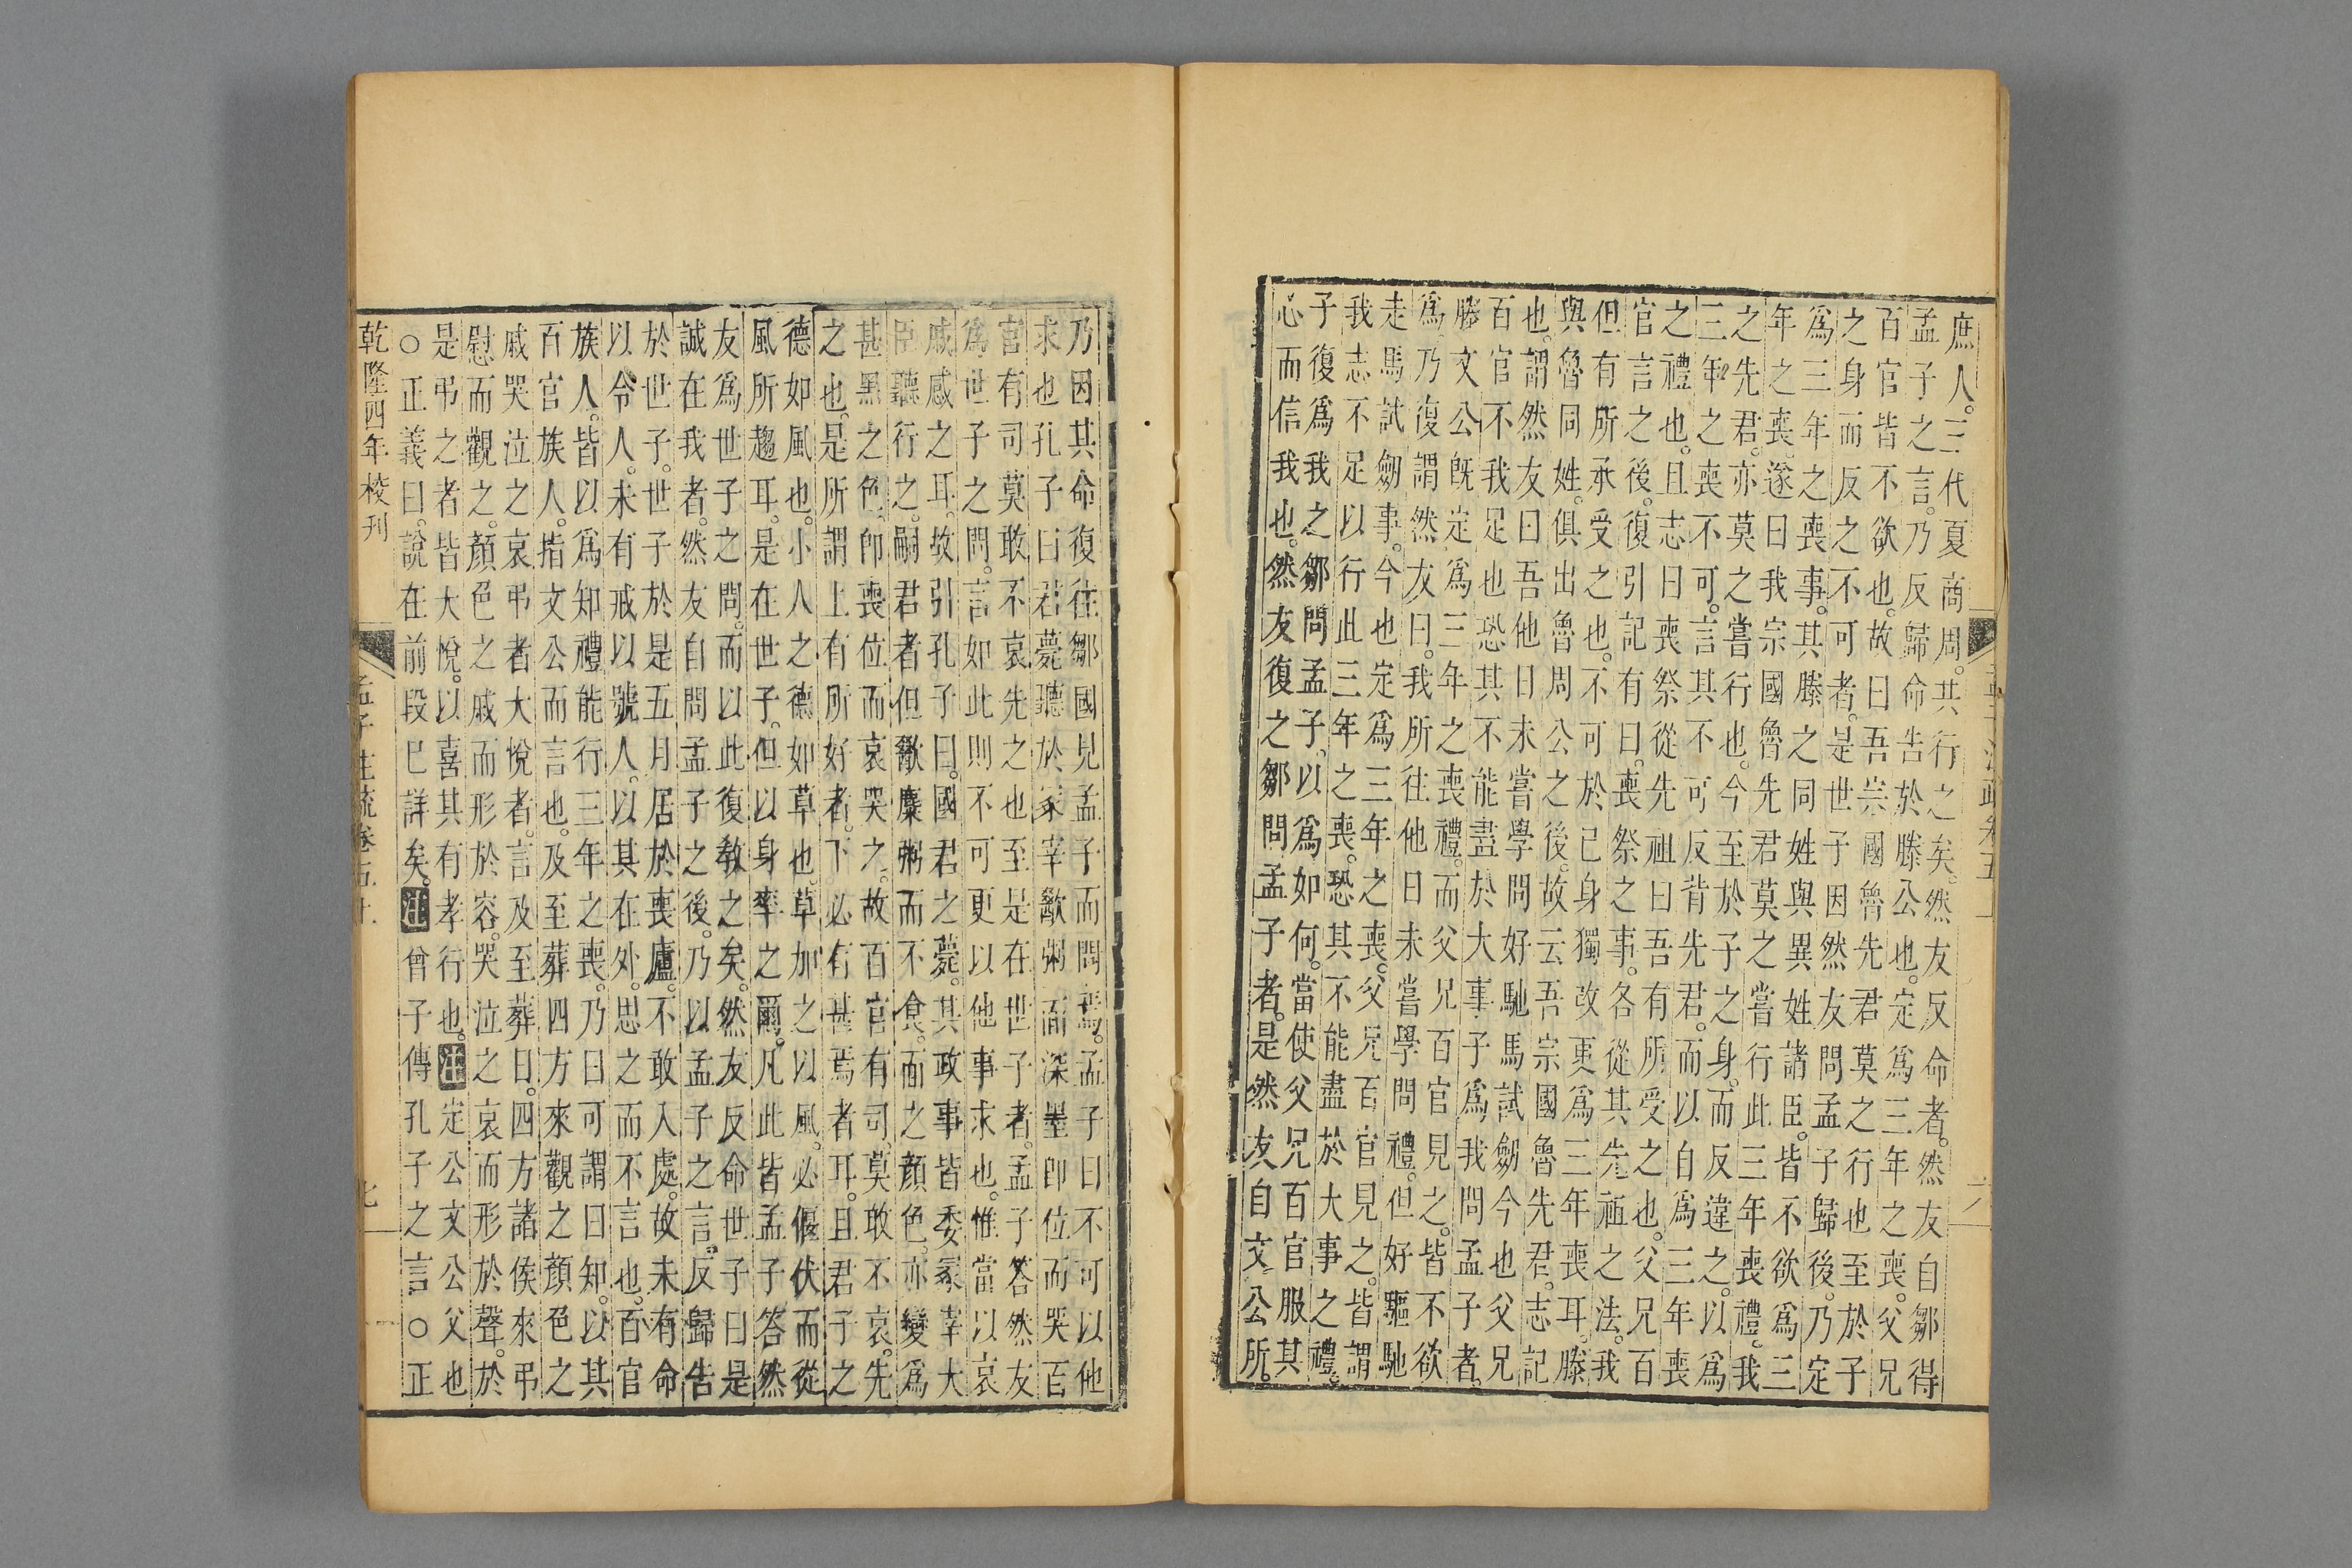 庶人。三代夏商周。共行之矣。然友反命者。然友自鄒得
孟子之言。乃反歸命告於滕公也。定爲三年之喪。父兄
百官皆不欲也。故曰吾宗國魯先君莫之行也至於子
之身而反之不可者。是世子因然友問孟子歸後。乃定
爲三年之喪事。其滕之同姓與異姓諸臣。皆不欲爲三
年之喪。遂曰我宗國魯先君莫之嘗行此三年喪禮。我
之先君。亦莫之嘗行也。今至於子之身。而反違之。以爲
三年之喪不可。言其不可反背先君。而以自爲三年喪
之禮也。且志曰喪祭從先祖曰吾有所受之也。父兄百
官言之後。復引記有曰。喪祭之事。各從其先祖之法。我
但有所承受之也。不可於己身獨改更爲三年喪耳。滕
與魯同姓。俱出魯周公之後。故云吾宗國魯先君。志記
也。謂然友曰吾他日未嘗學問好馳馬試劒今也父兄
百官不我足也恐其不能盡於大事子爲我問孟子者。
滕文公旣定爲三年之喪禮。而父兄百官見之。皆不欲
爲乃復謂然友曰。我所往他日未嘗學問禮。但好驅馳
走馬試劒事。今也定爲三年之喪。父兄百官見之。皆謂
我志不足以行此三年之喪。恐其不能盡於大事之禮。
子復爲我之鄒問孟子。以爲如何。當使父兄百官服其
心而信我也。然友復之鄒問孟子者。是然友自文公所
乃因其命復往鄒國見孟子而問焉。孟子曰不可以他
求也孔子曰君薨聽於冢宰歠粥面深墨卽位而哭百
官有司莫敢不哀先之也至是在世子者。孟子答然友
爲世子之問。言如此則不可更以他事求也。惟當以哀
戚感之耳。故引孔子曰。國君之薨。其政事皆委冢宰大
臣聽行之。嗣君者但歠麋粥而不食。面之顏色。亦變爲
甚黑之色。卽喪位而哀哭之。故百官有司。莫敢不哀。先
之也。是所謂上有所好者。下必有甚焉者耳。且君子之
德如風也。小人之德如草也。草加之以風。必偃伏而從
風所趨耳。是在世子。但以身率之爾。凡此皆孟子答然
友爲世子之問。而以此復敎之矣。然友反命世子曰是
誠在我者。然友自問孟子之後。乃以孟子之言。反歸告
於世子。世子於是五月居於喪廬。不敢入處。故未有命
以令人。未有戒以號人。以其在外。思之而不言也。百官
族人。皆以爲知禮能行三年之喪。乃曰可謂曰知。以其
百官族人。指文公而言也。及至葬四方來觀之顏色之
戚哭泣之哀弔者大悅者。言及至葬日。四方諸侯來弔
慰而觀之。顏色之戚而形於容。哭泣之哀而形於聲。於
是弔之者皆大悅。以喜其有孝行也。注定公文公父也
○正義曰。說在前段巳詳矣。注曾子傳孔子之言○正
乾隆四年校刊
孟子注疏卷五上